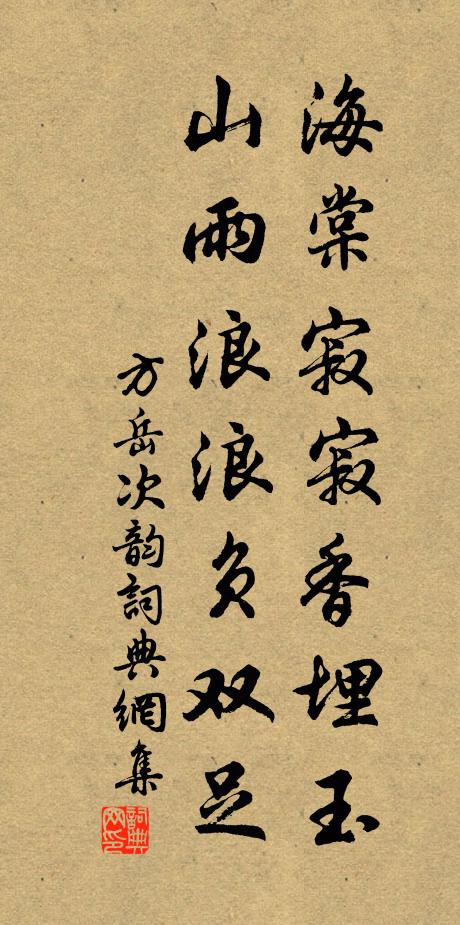 海棠寂寂香埋玉
山雨浪浪负双足
方岳次韵詞典網集
詞典網印